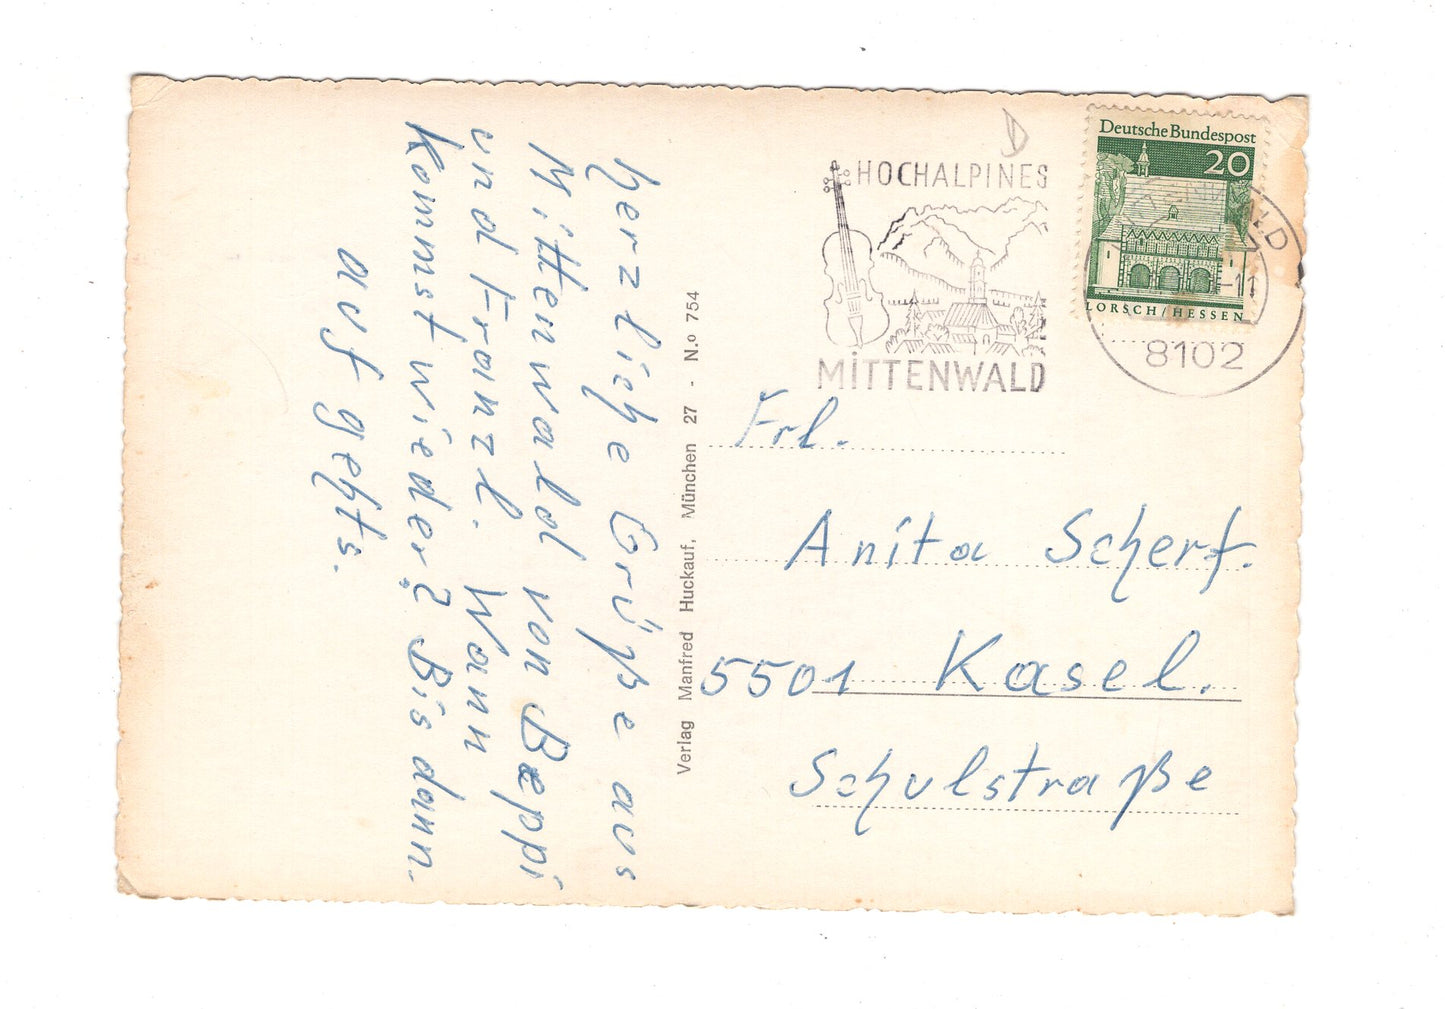 Herzliche Grüße aus
Mittenwald von Beppi
und Franzl. Wann
kommst wieder? Bis dann.
auf gehts.
Verlag Manfred Huckauf, München 27 - N.º 754
HOCHALPINES
MiTTENWALD
Deutsche Bundespost
20
LORSCH/HESSEN
-11
8102
Frl.
Anita Scherf.
5501 Kasel.
Schulstraße